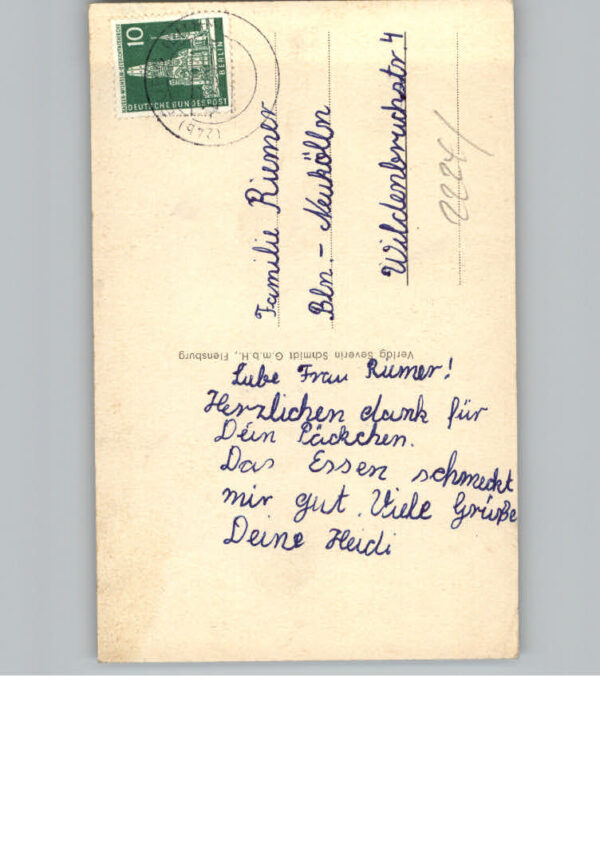 10
DEUTSCHE BUNDESPOST
BERLIN
Familie Riemer
Bln. - Neukölln
Wildenbruchstr 4
2224/
Verldg Severin Schmidt G.m.b.H., Flensburg
Liebe Frau Riemer!
Herzlichen dank für
Dein Päckchen.
Das Essen schmeckt
mir gut. Viele Grüße
Deine Heidi